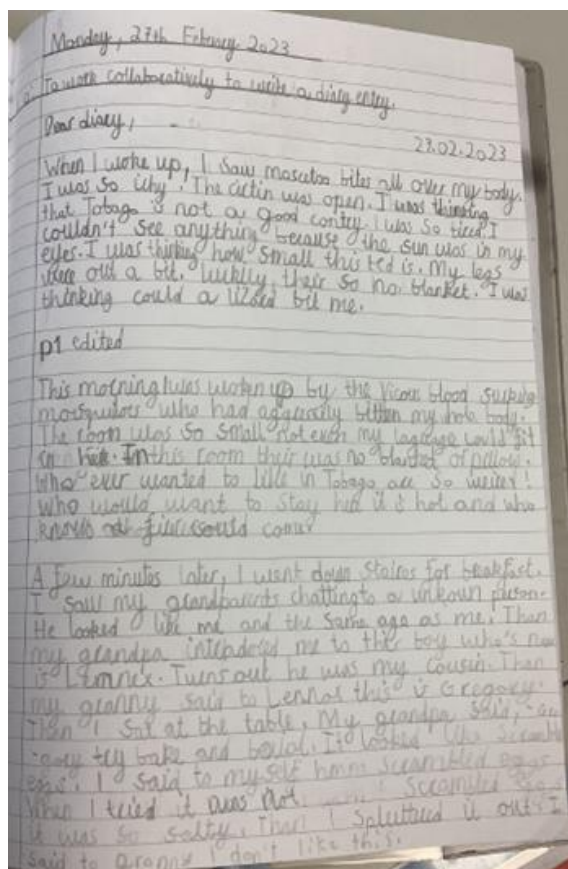 Monday, 27th February 2023
To work collaboratively to write a diary entry.
Dear diary,
27.02.2023
When I woke up, I saw moscutos bites all over my body.
I was so ichy. The cirtin was open. I was thinking
that Tobago is not a good contry. I was so tired I
couldn't see anything because the sun was in my
eyes. I was thinking how small this bed is. My legs
were out a bit. luckliy, their so no blanket. I was
thinking could a lizard bit me.
p1 edited
This morning I was woken up by the blood sucking
who had bitten my hole body.
The room was so small not even my laggage could fit
in In this room their was no blanket or pillow.
Who ever wanted to live in Tobago are so
Who would want to stay it is hot and who
knows could
A few minutes later, I went down staires for breakfast.
I saw my grandparents chatting to a unkoun person.
He looked like me and the same age as me. Than
my grandpa me to the boy who's
is Turns out he was my cousin. Than
my granny said to Lennox this is Gregory.
Than I sat at the table. My grandpa said,
try bake and It looked like
eggs. I said to myself hmm scrambled eggs
When I tried it was not scrambled eggs
it was so salty. Than I splutterd it out. I
said to granny I don't like this.